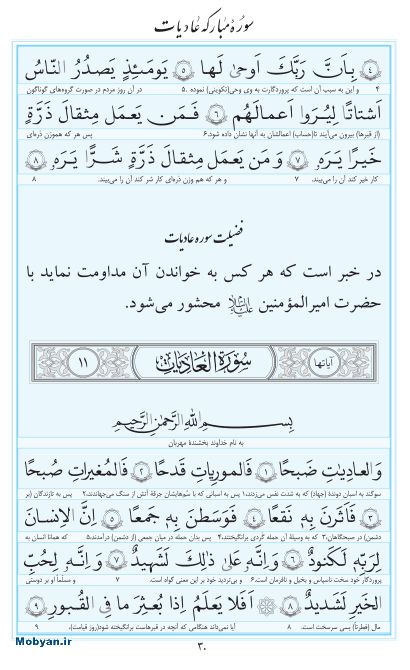 سورهٔ مبارکه عادیات
﴿٤﴾ بِاَنَّ رَبَّكَ اَوحىٰ لَها ﴿٥﴾ يَومَئِذٍ يَصدُرُ النّاسُ
٤ و این به سبب آن است که پروردگارت به وی وحی(تکوینی) نموده .٥ در آن روز مردم در صورت گروه‌های گوناگون
اَشتاتًا لِيُرَوا اَعمالَهُم ﴿٦﴾ فَمَن يَعمَل مِثقالَ ذَرَّةٍ
(از قبرها) بیرون می‌آیند تا(حساب) اعمالشان به آنها نشان داده شود.٦ پس هر که هم‌وزن ذره‌ای
خَيرًا يَرَهُ ﴿٧﴾ وَ مَن يَعمَل مِثقالَ ذَرَّةٍ شَرًّا يَرَهُ ﴿٨﴾
کار خیر کند آن را می‌بیند. ٧ و هر که هم وزن ذره‌ای کار شر کند آن را می‌بیند. ٨
فضیلت سوره عادیات
در خبر است که هر کس به خواندن آن مداومت نماید با
حضرت امیرالمؤمنین علیه‌السلام محشور می‌شود.
آیاتها سُورَةُ العَادِيَاتِ ١١
بِسمِ اللهِ الرَّحمٰنِ الرَّحيمِ
به نام خداوند بخشندهٔ مهربان
وَالعادِياتِ ضَبحًا ﴿١﴾ فَالمورِياتِ قَدحًا ﴿٢﴾ فَالمُغيراتِ صُبحًا
سوگند به اسبان دوندهٔ (جهاد) که به شدت نفس می‌زدند،١ پس به اسبانی که با سُم‌هایشان جرقهٔ آتش از سنگ می‌جهاندند،٢ پس به تازندگان (بر
﴿٣﴾ فَاَثَرنَ بِهِ نَقعًا ﴿٤﴾ فَوَسَطنَ بِهِ جَمعًا ﴿٥﴾ اِنَّ الاِنسانَ
دشمن) در صبحگاهان،٣ که به وسیلهٔ آن حمله گردی برانگیختند،٤ پس بدان حمله در میان جمعی (از دشمن) درآمدند٥ که همانا انسان به
لِرَبِّهِ لَكَنودٌ ﴿٦﴾ وَاِنَّهُ عَلىٰ ذٰلِكَ لَشَهيدٌ ﴿٧﴾ وَاِنَّهُ لِحُبِّ
پروردگار خود سخت ناسپاس و بخیل و نافرمان است.٦ و بی‌تردید خود بر این معنی گواه است. ٧ و مسلماً او بر دوستی
الخَيرِ لَشَديدٌ ﴿٨﴾ اَفَلا يَعلَمُ اِذا بُعثِرَ ما فِى القُبورِ ﴿٩﴾
مال (فطرتاً) بسی سرسخت است. ٨ آیا نمی‌داند هنگامی که آنچه در قبرهاست برانگیخته شود(روز قیامت)، ٩
٣٠
Mobyan.ir